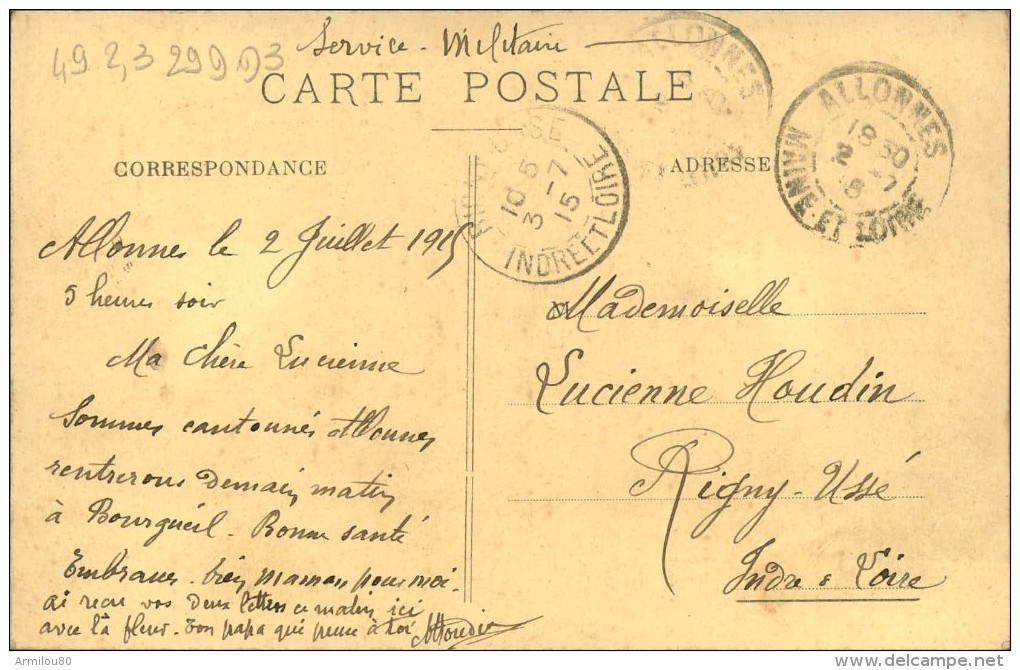 49 2,3 299 D3
Service - Militaire
CARTE POSTALE
CORRESPONDANCE
ADRESSE
ALLONNES
ALLONNES
18 30
2 - 7
15
MAINE-ET-LOIRE
10 5
3 - 7
15
INDRE ET LOIRE
Allonnes le 2 Juillet 1915
5 heures soir
Ma Chère Lucienne
Sommes cantonnés Allonnes
rentrerons Demain matin
à Bourgueil. Bonne santé
Embrasses bien maman pour moi.
ai recu vos Deux lettres ce matin ici
avec la fleur. Ton papa qui pense à toi
AHoudin
Mademoiselle
Lucienne Houdin
Rigny-Ussé
Indre & Loire
Armilou80
delcampe.net